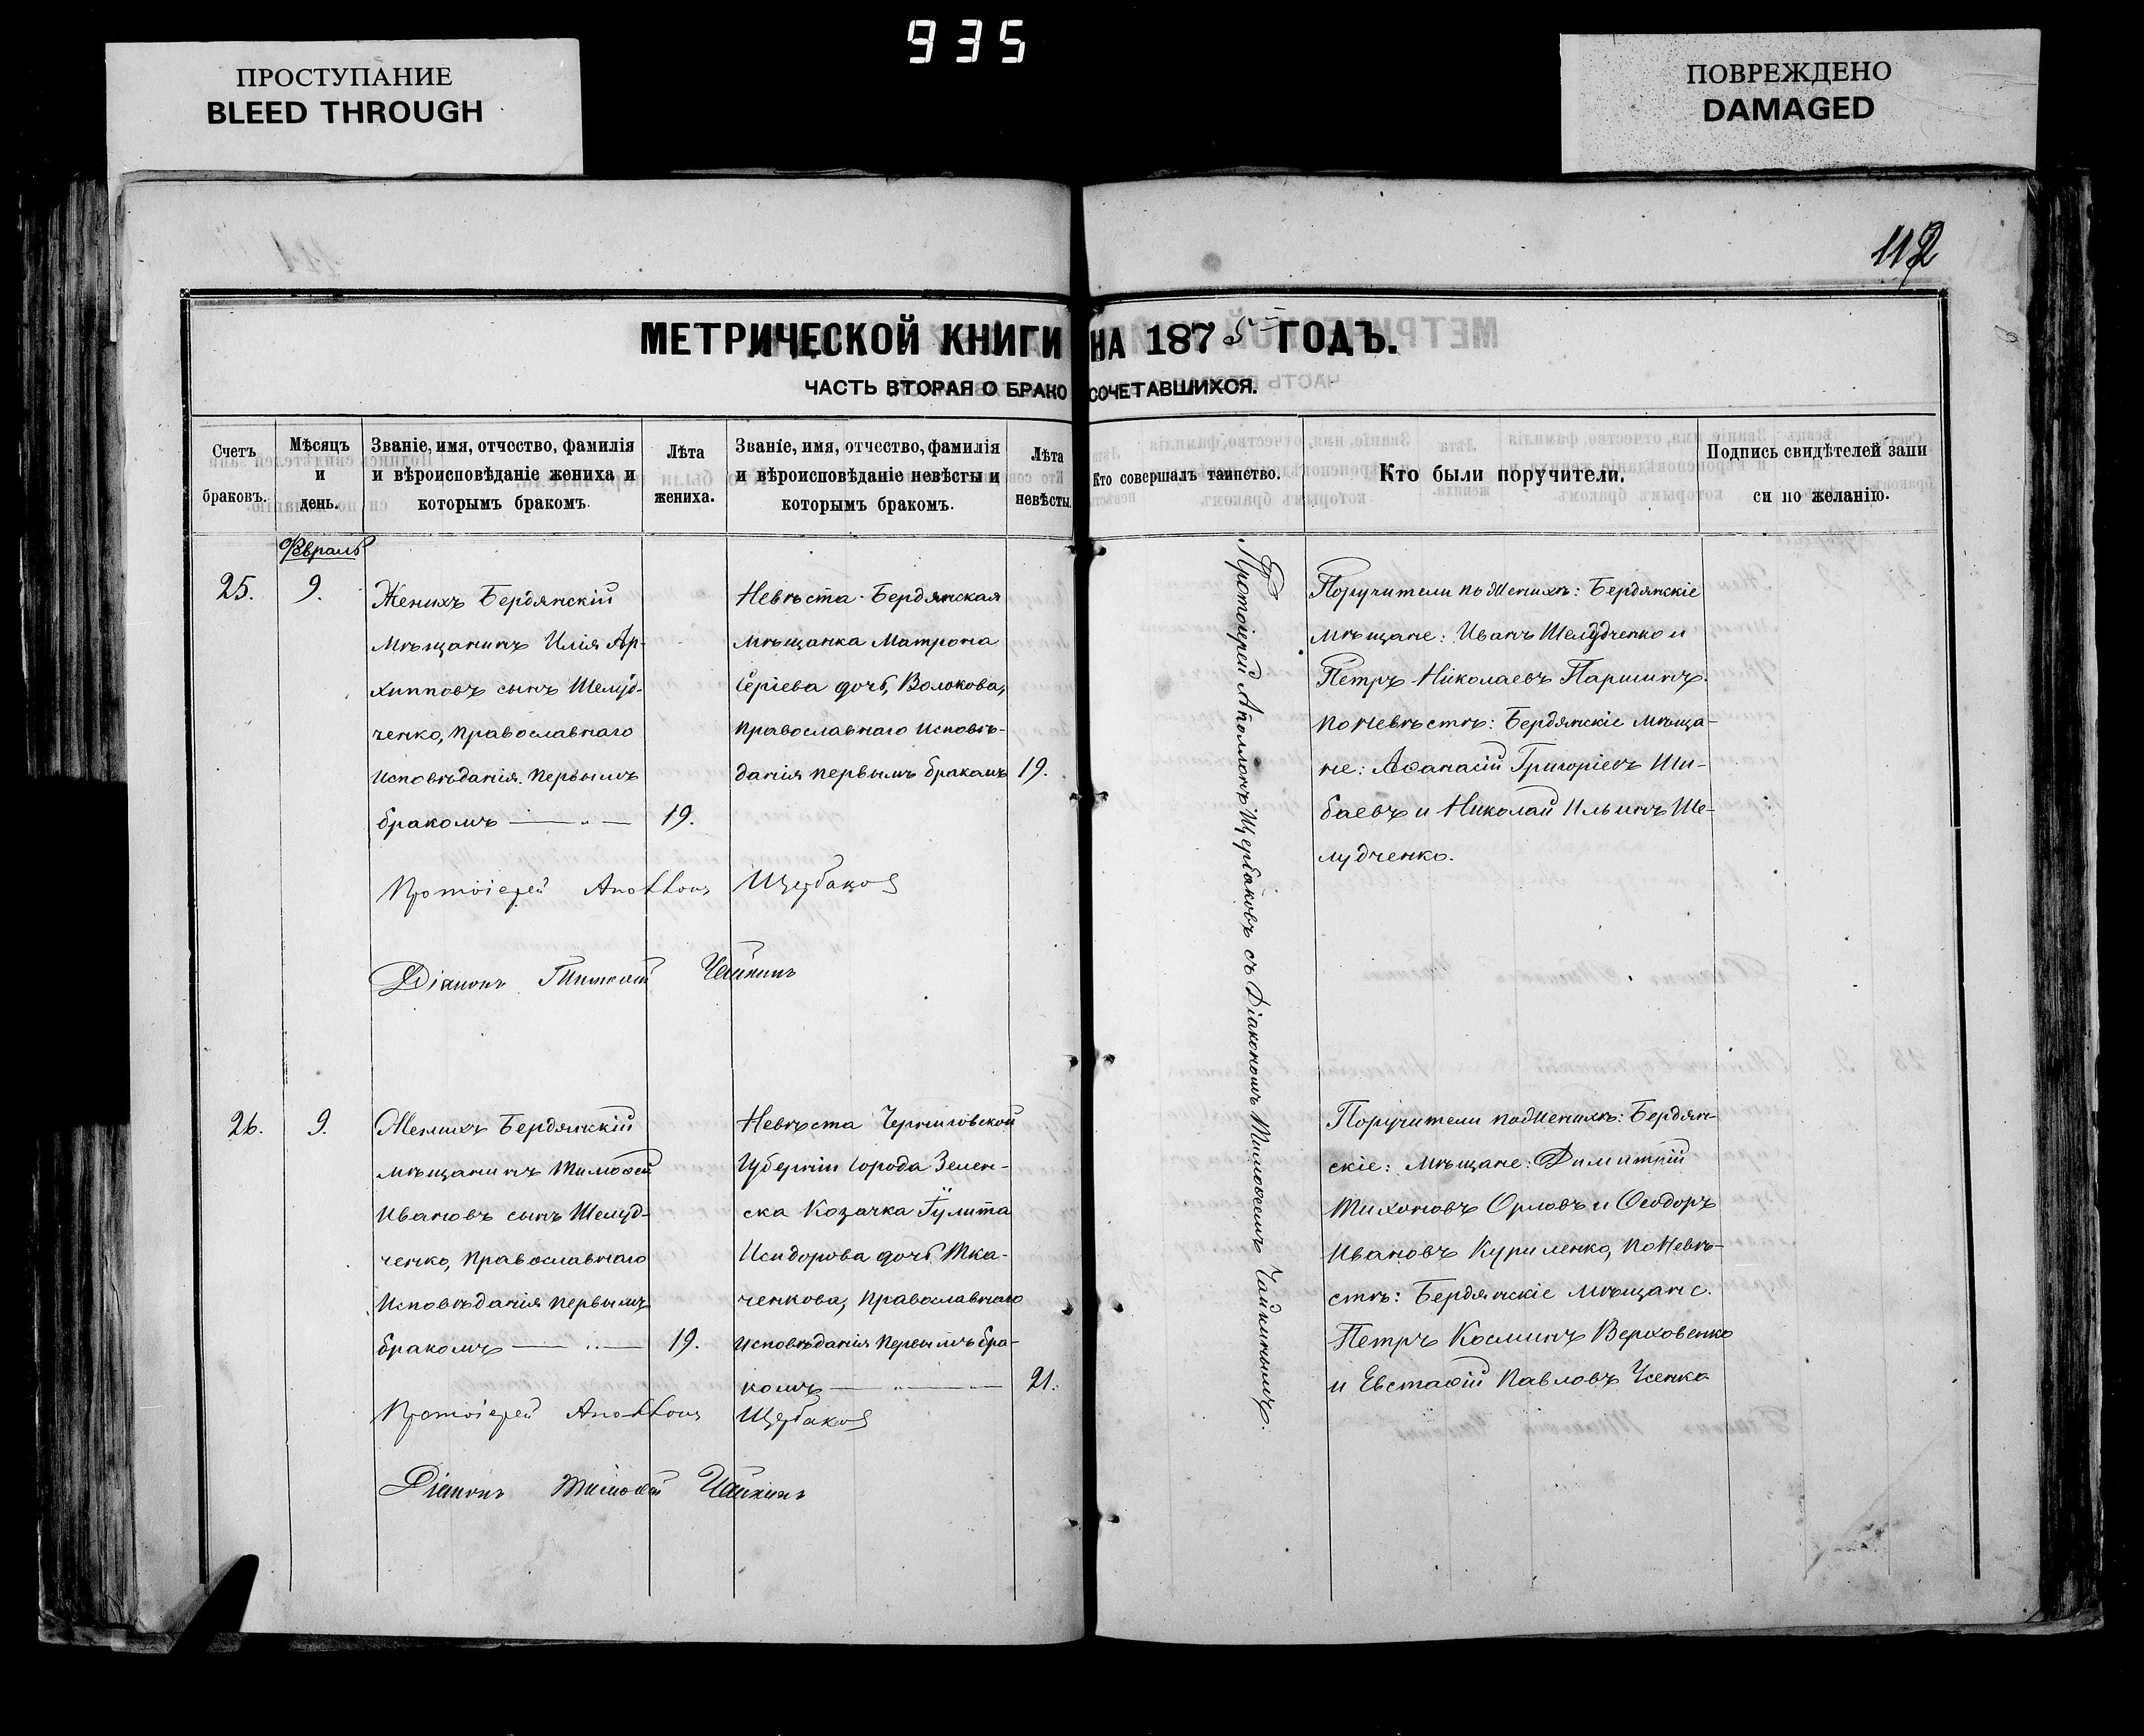 935
ПРОСТУПАНИЕ
BLEED THROUGH
ПОВРЕЖДЕНО
DAMAGED
112
МЕТРИЧЕСКОЙ КНИГИ НА 1875 ГОДЪ.
ЧАСТЬ ВТОРАЯ О БРАКОСОЧЕТАВШИХСЯ.
Счетъ
браковъ.
Мѣсяцъ
и
день.
Званіе, имя, отчество, фамилія
и вѣроисповѣданіе жениха и
которымъ бракомъ.
Лѣта
жениха.
Званіе, имя, отчество, фамилія
и вѣроисповѣданіе невѣсты и
которымъ бракомъ.
Лѣта
невѣсты
Кто совершалъ таинство.
Кто были поручители.
Подпись свидѣтелей запи
си по желанію.
Февраль
25.
9.
Женихъ Бердянскій
Мѣщанинъ Илія Ар-
хипповъ сынъ Шелуд-
ченко, Православнаго
Исповѣданія. Первымъ
бракомъ — „ —
19.
Невѣста Бердянская
Мѣщанка Матрона
Сергіева дочь, Волокова,
Православнаго Исповѣ-
данія первымъ бракамъ
19.
Протоіерей Аполлонъ Щербаковъ
Діаконъ Тимоѳей Чайкинъ
Протоіерей Аполлонъ Щербаковъ съ Діакономъ Тимоѳеемъ Чайкинымъ.
Поручители по Женихѣ: Бердянскіе
мѣщане: Иванъ Шелудченко и
Петръ Николаевъ Паршинъ.
по Невѣстѣ: Бердянскіе мѣща-
не: Аѳанасій Григоріевъ Ши-
баевъ и Николай Ильинъ Ше-
лудченко.
26.
9.
Женихъ Бердянскій
мѣщанинъ Тимоѳей
Ивановъ сынъ Шелуд-
ченко, Православнаго
Исповѣданія первымъ
бракомъ — „ —
19.
Невѣста Черниговской
Губерніи города Зелен-
ска Козачка Гулита
Исидорова дочь Тка-
ченкова, Православнаго
исповѣданія Первымъ бра-
комъ — „ —
21.
Протоіерей Аполлонъ Щербаковъ
Діаконъ Тимоѳей Чайкинъ
Поручители по Женихѣ: Бердян-
скіе: Мѣщане: Димитрій
Тихоновъ Орловъ и Ѳеодоръ
Ивановъ Куриленко, по Невѣ-
стѣ: Бердянскіе мѣщане.
Петръ Косминъ Верховенко
и Евстаѳій Павловъ Усенко